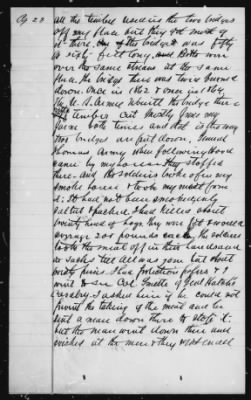 Qy 23 All the timber used in the two bridges
off my place but they got most of
it there. One of the bridges was fifty
or sixty feet long, and Both were
over the same stream at the same
place. The bridge there was twice burned
down. Once in 1862 & once in 1864
The U.S. Armee rebuilt the bridge there
timber cut mostly from my
farm both times and that is the way
two bridges are put down. General
Thomas Army when following Hood
came by my house. They stopped
there and the soldiers broke open my
smoke house & took my meat from
it: It had not been once
salted & packed. I had killed about
twenty head of hogs they were fat & would
average 200 pounds each. The soldiers
took the meat off in their hands and
in sacks till all was gone but about
pieces. I had protection papers & I
went to see Col. Smith of Genl Hatchs
Cavalry. I asked him if he could not
prevent the taking of the meat and he
sent a man down there to stop it:
but the man went down there and
at the men & they